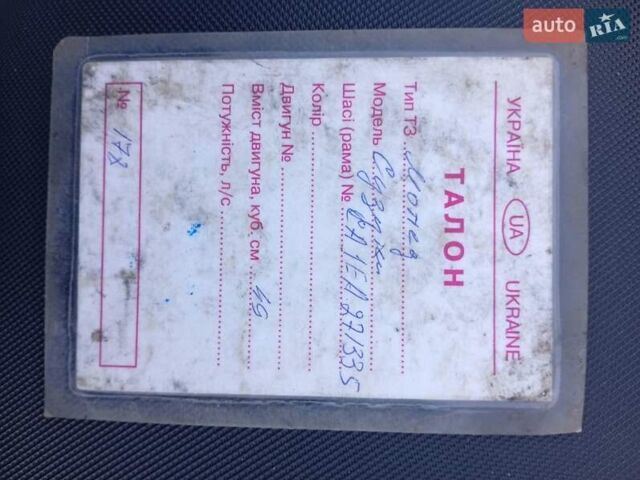 auto RIA.com
УКРАЇНА UA UKRAINE
ТАЛОН
Тип ТЗ Мопед
Модель Сузуки
Шасі (рама) № CA1EA271335
Колір
Двигун №
Вміст двигуна, куб. см 49
Потужність, л/с
№ 178